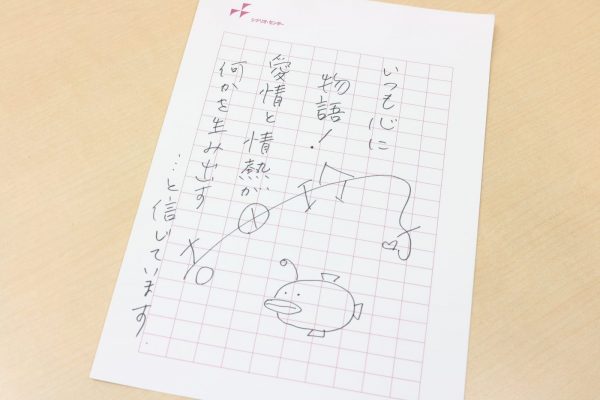 シナリオ・センター
いつも心に
物語!
愛情と情熱が
何かを生み出す
…と信じています.